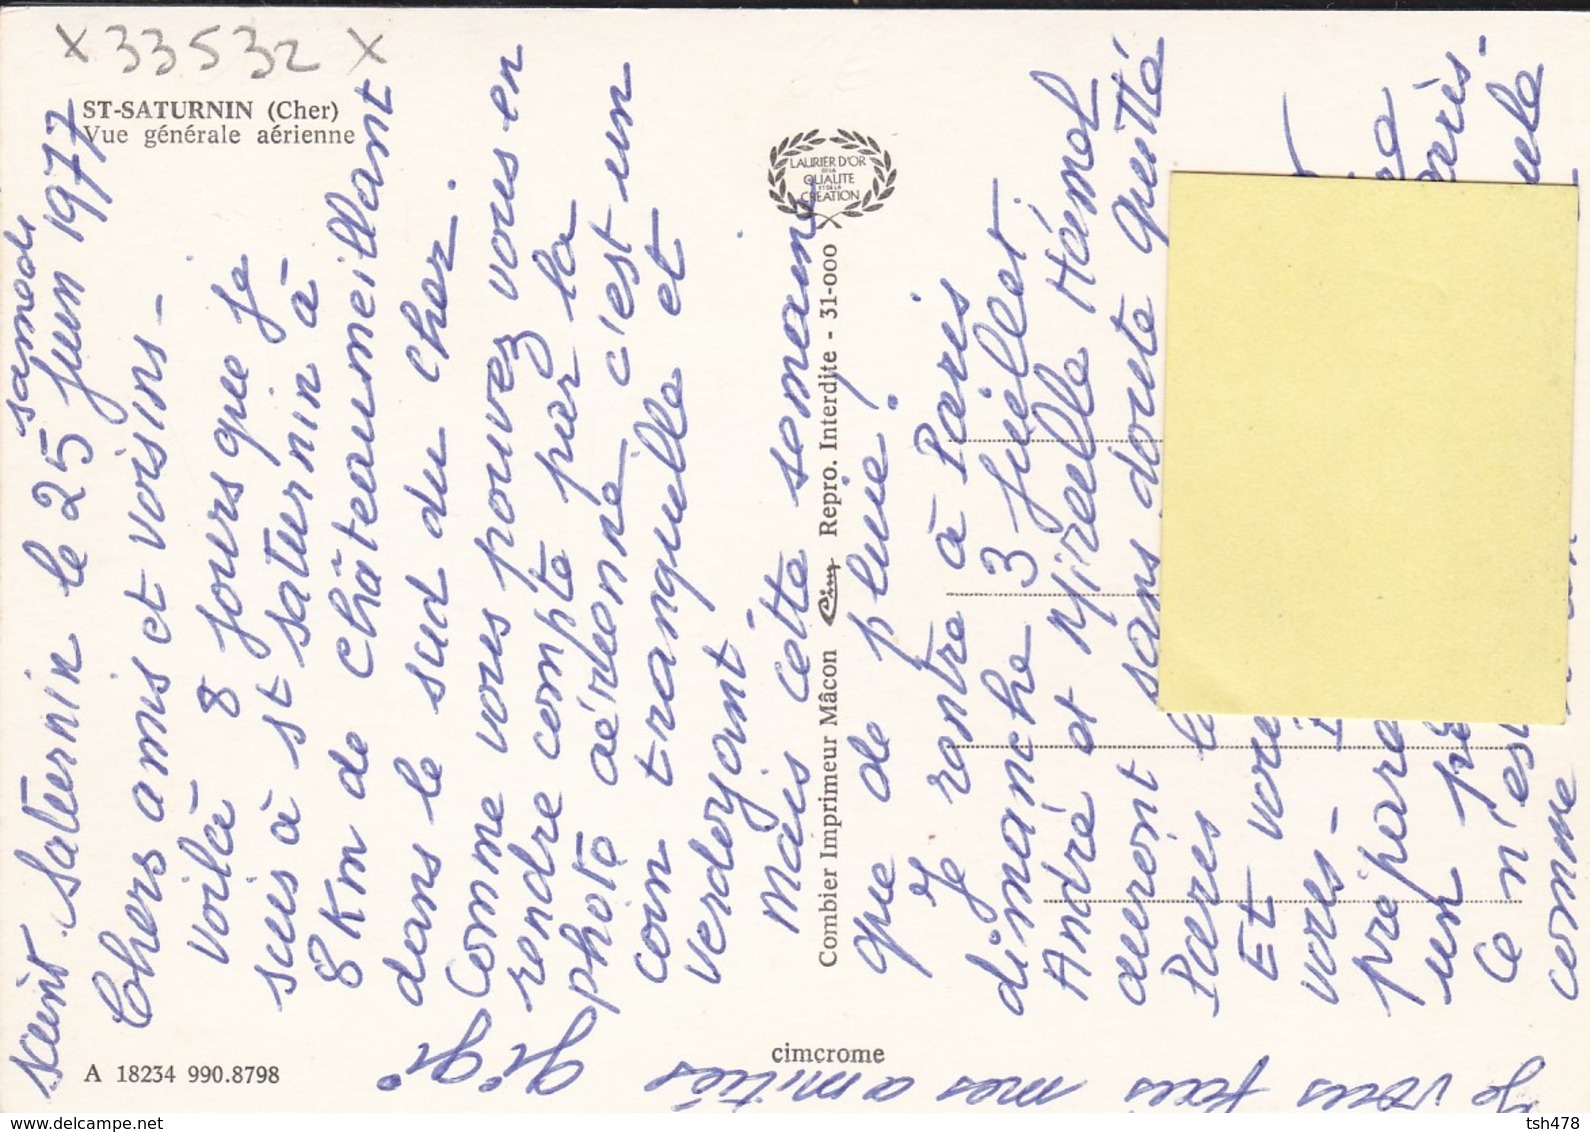 x 33532 x
ST-SATURNIN (Cher)
Vue générale aérienne
LAURIER D'OR
DE LA
QUALITE
ET DE LA
CREATION
Combier Imprimeur Mâcon Cim Repro. Interdite - 31-000
cimcrome
A 18234 990.8798
samedi
Saint Saturnin le 25 juin 1977
Chers amis et voisins -
voilà 8 jours que je
suis à st saturnin à
8 km de châteaumeillant
dans le sud du cher.
Comme vous pouvez vous en
rendre compte par la
photo aérienne c'est un
coin tranquille et
verdoyant.
Mais cette semaine
que de pluie !
Je rentre à Paris
dimanche 3 juillet.
André et Mireille Hámel
auront sans doute quitté
Paris le
Et
vous -
prépare
un
ce n'est
comme
Je vous fais mes amitiés
gigi
delcampe.net
tsh478